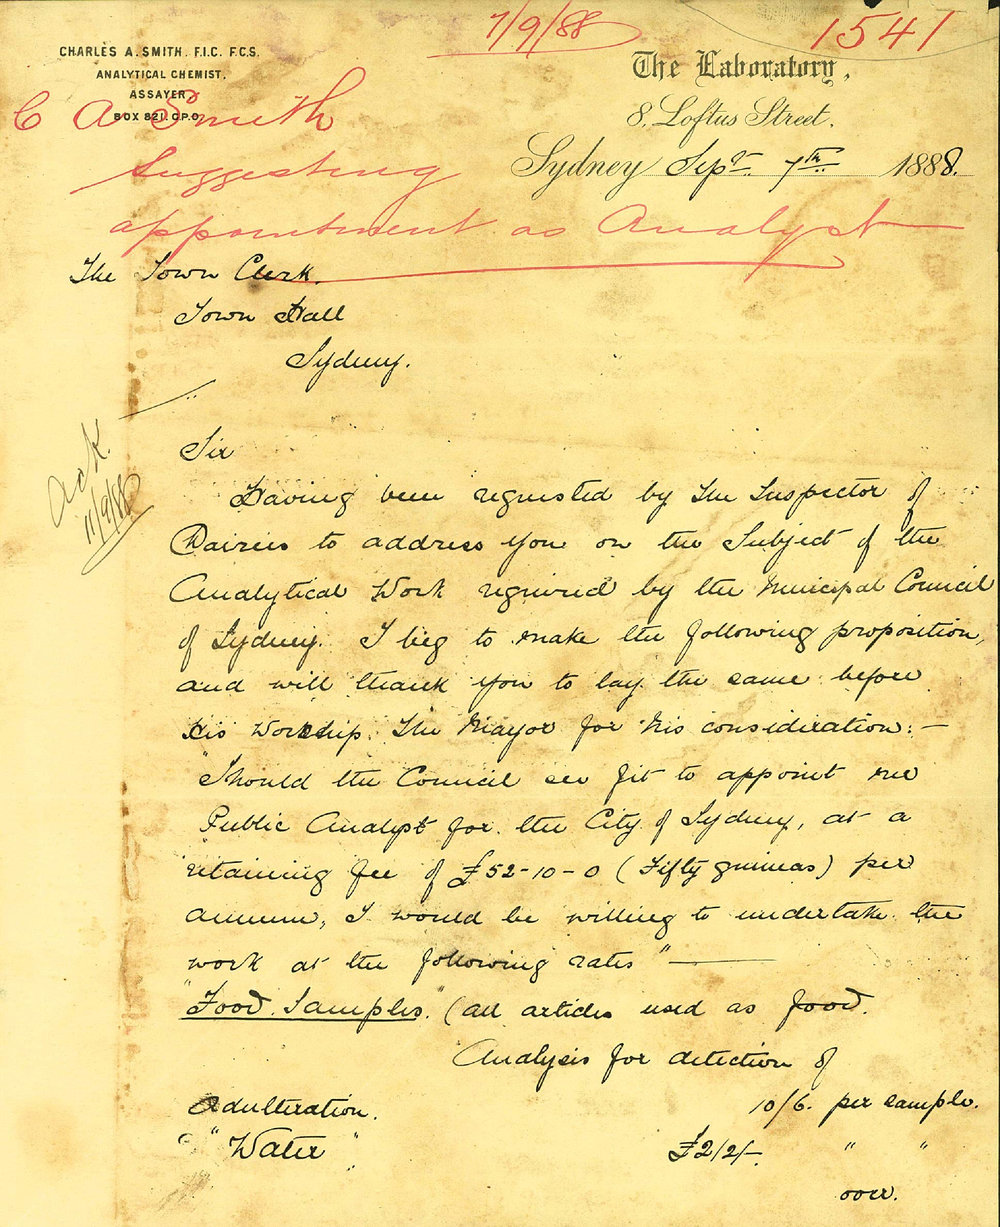 7/9/88
1541
CHARLES A. SMITH. F.I.C. F.C.S.
ANALYTICAL CHEMIST,
ASSAYER,
BOX 821. G.P.O.
The Laboratory,
8, Loftus Street.
Sydney Sept. 7th 1888.
C A Smith
Suggesting
appointment as Analyst
The Town Clerk.
Town Hall
Sydney.
Ack.
11/9/88
Sir
Having been requested by the Inspector of
Dairies to address you on the Subject of the
Analytical Work required by the Municipal Council
of Sydney. I beg to make the following proposition,
and will thank you to lay the same before
His Worship. The Mayor for his consideration: —
"Should the Council see fit to appoint me
Public Analyst for the City of Sydney, at a
retaining fee of £52-10-0 (Fifty guineas) per
annum, I would be willing to undertake the
work at the following rates" —
"Food Samples. (all articles used as food.
Analysis for detection of
Adulteration. 10/6. per sample.
"Water" £2/2/-. " "
over.